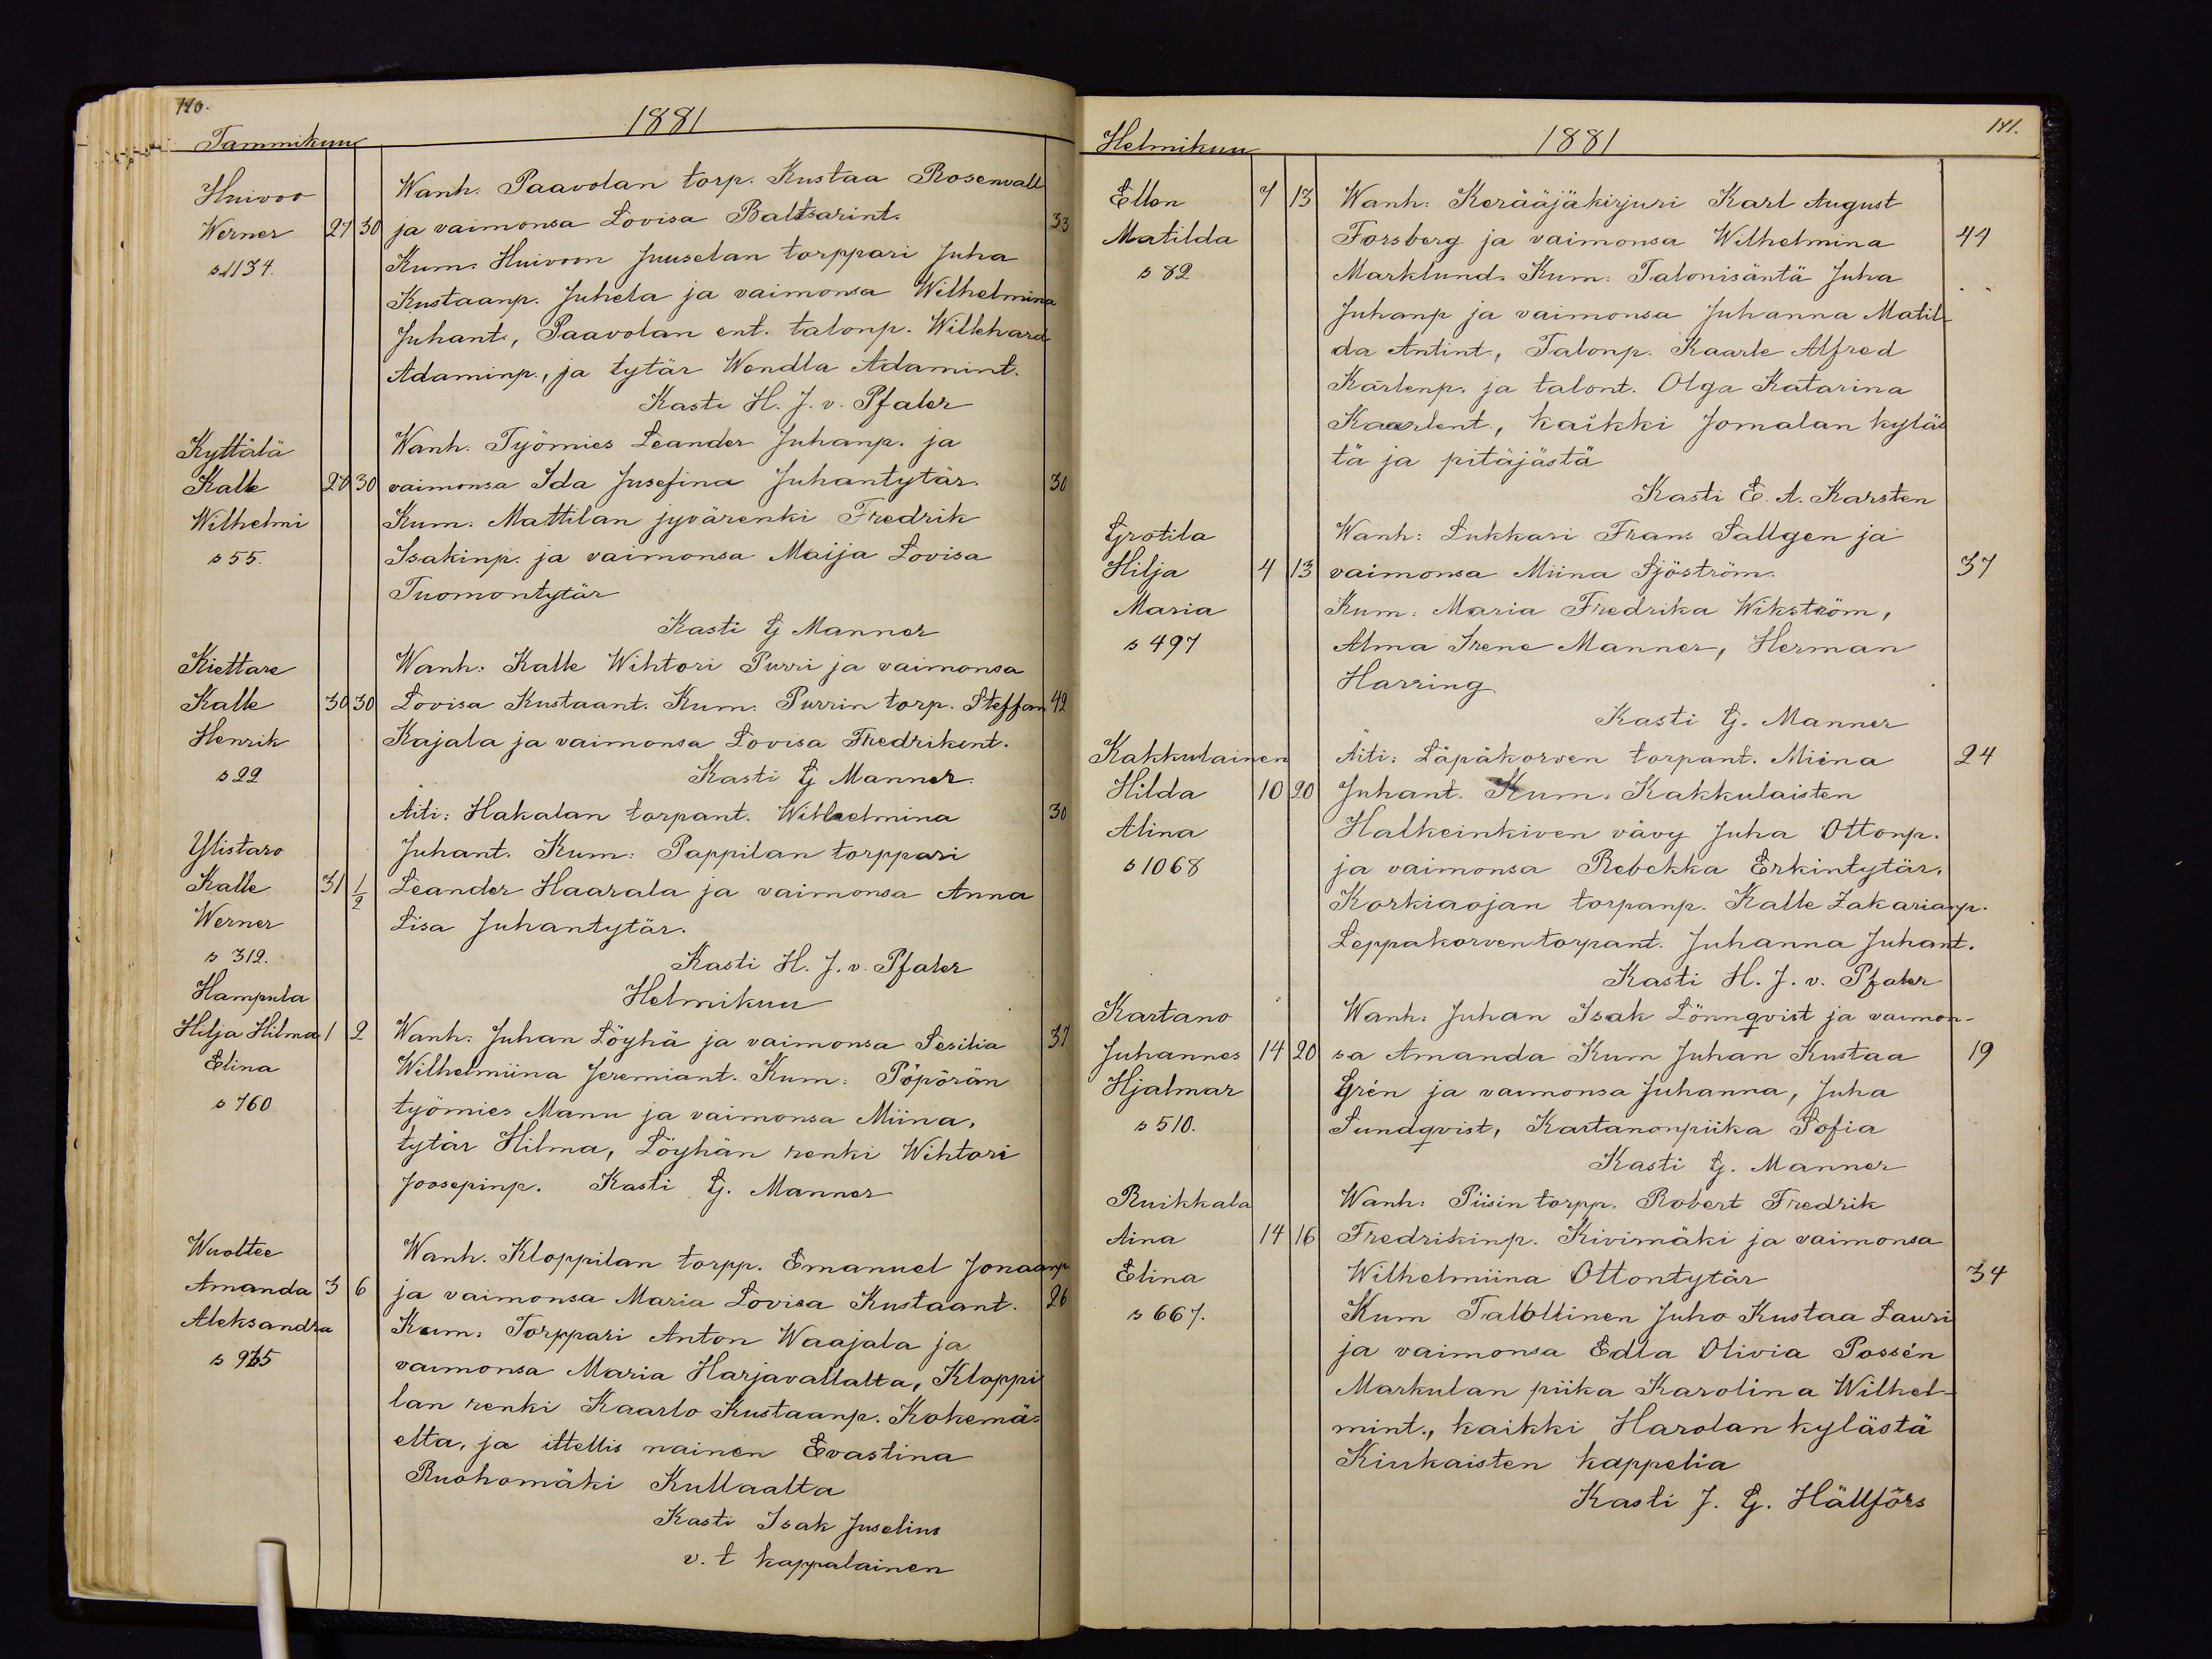 140.
1881
Tammikuu
Huivoo
Wanh. Paavolan torp. Kustaa Rosenvall
Werner 27 30 ja vaimonsa Lovisa Baltsarint. 33
s 1134. Kum. Huivoon Juuselan torppari Juha
Kustaanp. Juhela ja vaimonsa Wilhelmina
Juhant., Paavolan ent. talonp. Wilkhard
Adaminp., ja tytär Wendla Adamint.
Kasti H. J. v. Pfaler
Kyttälä Wanh. Työmies Leander Juhanp. ja
Kalle 27 30 vaimonsa Ida Jusefina Juhantytär. 30
Wilhelmi Kum. Mattilan jyvärenki Fredrik
s 55. Isakinp. ja vaimonsa Maija Lovisa
Tuomontytär
Kasti G Manner
Kiettare Wanh. Kalle Wihtori Purri ja vaimonsa
Kalle 30 30 Lovisa Kustaant. Kum. Purrin torp. Steffan 42
Henrik Kajala ja vaimonsa Lovisa Fredrikent.
s 22 Kasti G Manner.
Äiti: Hakalan torpant. Wilhelmina 30
Ylistaro Juhant. Kum: Pappilan torppari
Kalle 31 1/2 Leander Haarala ja vaimonsa Anna
Werner Lisa Juhantytär.
s 312. Kasti H. J. v. Pfaler
Hampula Helmikuu
Hilja Hilma 1 2 Wanh: Juhan Löyhä ja vaimonsa Sesilia 37
Elina Wilhelmiina Jeremiant. Kum: Pöpörän
s 760 työmies Manu ja vaimonsa Miina,
tytär Hilma, Löyhän renki Wihtori
Joosepinp. Kasti G. Manner
Wuoltee Wanh. Kloppilan torpp. Emanuel Jonaanp
Amanda 3 6 ja vaimonsa Maria Lovisa Kustaant. 26
Aleksandra Kum: Torppari Anton Waajala ja
s 965 vaimonsa Maria Harjavallalta, Kloppi
lan renki Kaarlo Kustaanp. Kokemä-
elta, ja ittellis nainen Evastina
Ruohomäki Kullaalta
Kasti Isak Juselius
v. t kappalainen
141.
Helmikuu 1881
Ellen 7 13 Wanh: Kerääjäkirjuri Karl August
Matilda Forsberg ja vaimonsa Wilhelmina 44
s 82 Marklund. Kum: Talonisäntä Juha
Juhanp ja vaimonsa Juhanna Matil-
da Antint., Talonp. Kaarle Alfred
Kärlenp. ja talont. Olga Katarina
Kaarlent., kaikki Jomalan kyläs
tä ja pitäjästä
Kasti E. A. Karsten
Grotila Wanh: Lukkari Frans Sallgen ja
Hilja 4 13 vaimonsa Miina Sjöström. 37
Maria Kum: Maria Fredrika Wikström,
s 497 Alma Irene Manner, Herman
Harring
Kasti G. Manner
Kakkulainen Äiti: Läpäkorven torpant. Miina 24
Hilda 10 20 Juhant. Kum. Kakkulaisten
Alina Halkeinkiven vävy Juha Ottonp.
s 1068 ja vaimonsa Rebekka Erkintytär,
Korkiaojan torpanp. Kalle Zakarianp.
Leppakorven torpant. Juhanna Juhant.
Kasti H. J. v. Pfaler
Kartano Wanh. Juhan Isak Lönnqvist ja vaimon-
Juhannes 14 20 sa Amanda Kum Juhan Kustaa 19
Hjalmar Grén ja vaimonsa Juhanna, Juha
s 510. Sundqvist, Kartanonpiika Sofia
Kasti G. Manner
Ruikkala Wanh: Piisin torpp. Robert Fredrik
Aina 14 16 Fredrikinp. Kivimäki ja vaimonsa
Elina Wilhelmiina Ottontytär 34
s 667. Kum Talollinen Juho Kustaa Lauri
ja vaimonsa Edla Olivia Possén
Markulan piika Karolina Wilhel-
mint., kaikki Harolan kylästä
Kiukaisten kappelia
Kasti J. G. Hällförs